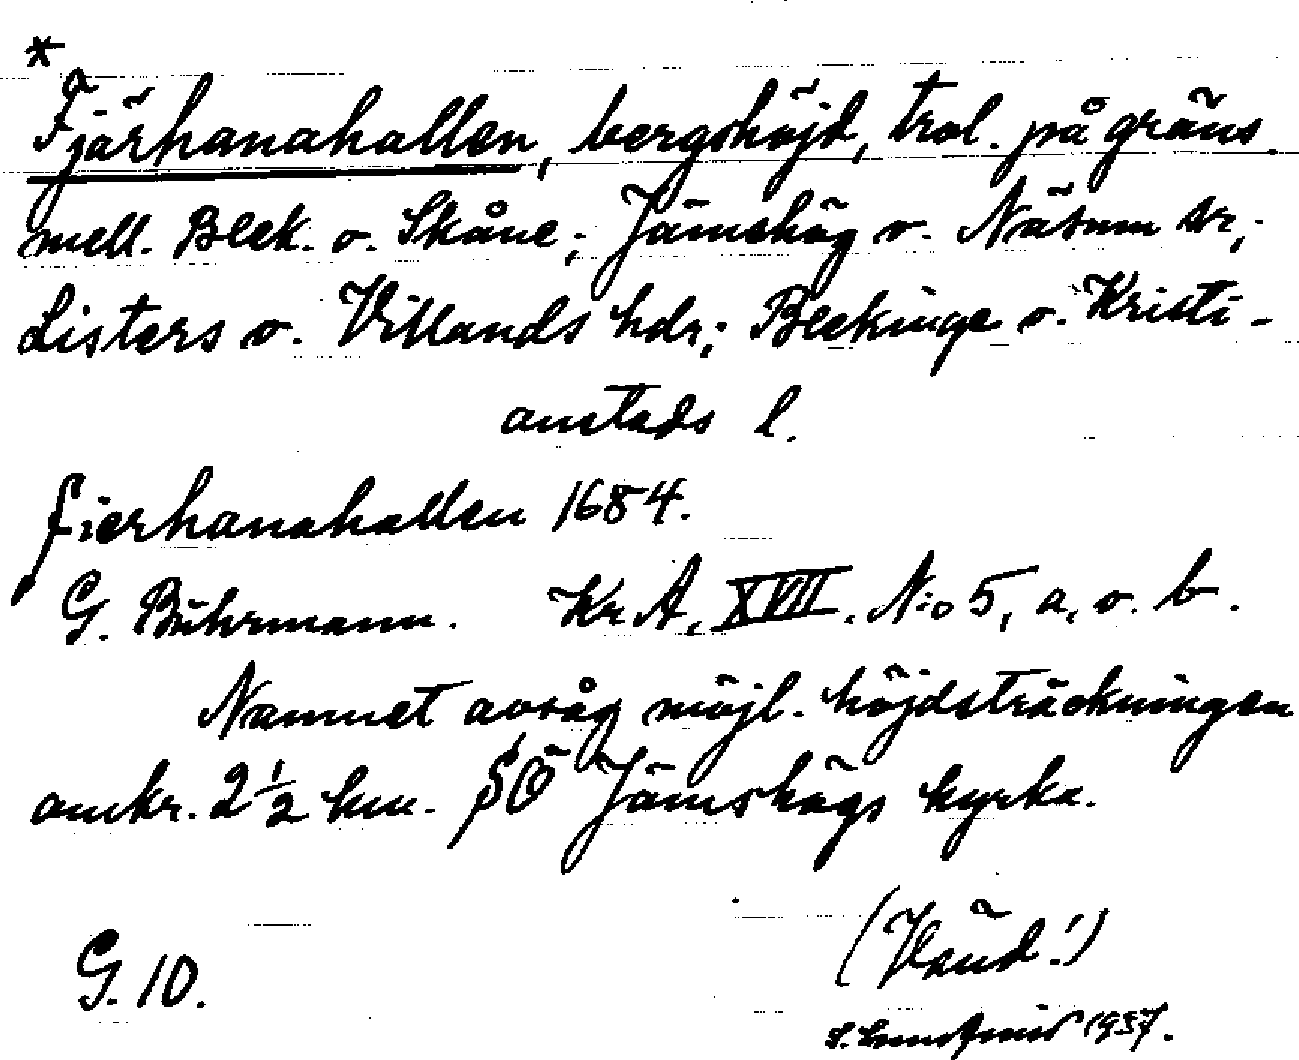 *
Fjärhanahallen, bergshöjd, trol. på gräns
mell. Blek. o. Skåne; Jämshög o. Näsum sr,
Listers o. Villands hdr; Blekinge o. Kristi-
anstads l.
fierhanahallen 1684.
G. Buhrmann. KrA, XVII. N:o 5, a, o. b.
Namnet avsåg möjl. höjdsträckningen
omkr. 2 1/2 km. SÖ Jämshögs kyrka.
(Vänd!)
G. 10.
1937.